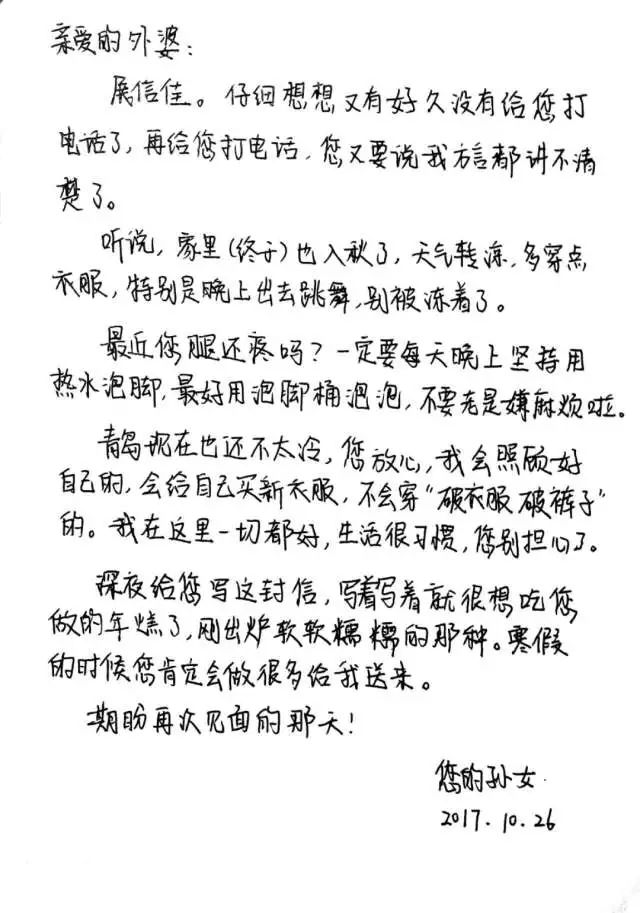 亲爱的外婆：
展信佳。仔细想想又有好久没有给您打
电话了，再给您打电话，您又要说我方言都讲不清
楚了。
听说，家里（终于）也入秋了，天气转凉，多穿点
衣服，特别是晚上出去跳舞，别被冻着了。
最近您腿还疼吗？一定要每天晚上坚持用
热水泡脚，最好用泡脚桶泡泡，不要老是嫌麻烦啦。
青岛现在也还不太冷，您放心，我会照顾好
自己的，会给自己买新衣服，不会穿“破衣服破裤子”
的。我在这里一切都好，生活很习惯，您别担心了。
深夜给您写这封信，写着写着就很想吃您
做的年糕了，刚出炉软软糯糯的那种。寒假
的时候您肯定会做很多给我送来。
期盼再次见面的那天！
您的孙女
2017.10.26